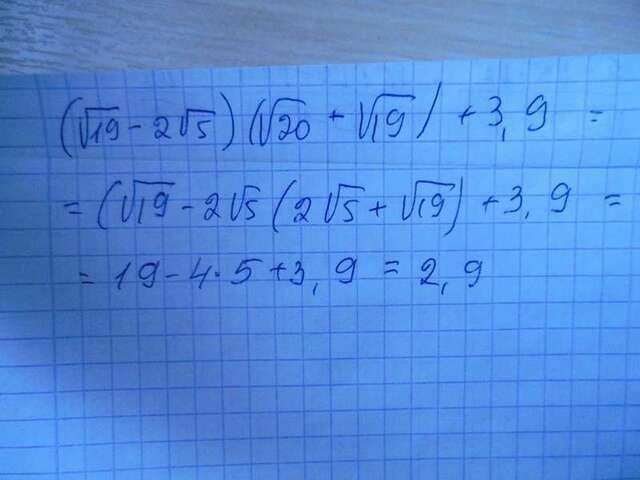 (√19 - 2√5) (√20 + √19) + 3,9 =
= (√19 - 2√5 (2√5 + √19) + 3,9 =
= 19 - 4·5 + 3,9 = 2,9